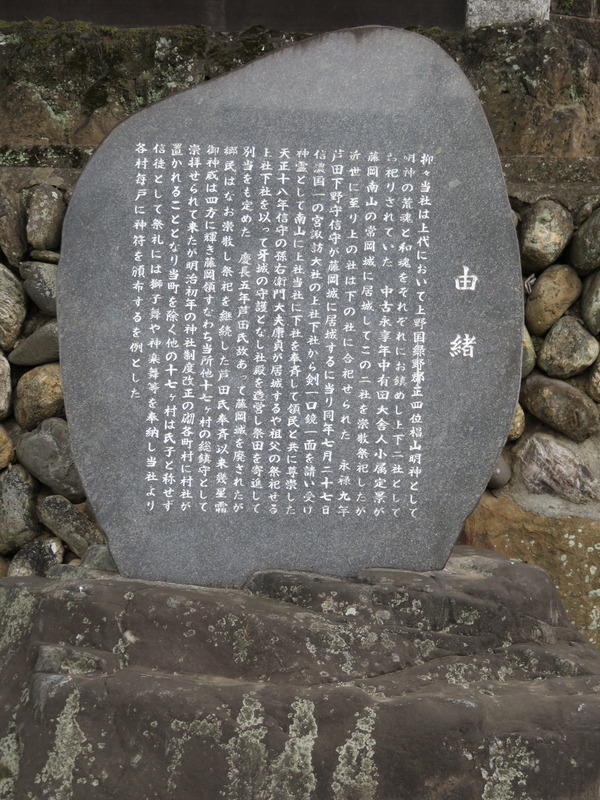 由緒
抑々当社は上代において上野国緑野郡正四位椙山明神として
明神の荒魂と和魂をそれぞれにお鎮めし上下二社として
お祀りされていた 中古永享年中有田大舎人小属定景が
藤岡南山の常岡城に居城してこの二社を崇敬祭祀したが
近世に至り上の社は下の社に合祀せられた 永禄九年
芦田下野守信守が藤岡城に居城するに当り同年七月二十七日
信濃国一の宮諏訪大社の上社下社から剣一口鏡一面を請い受け
神霊として南山に上社当社に下社を奉斎して領民と共に尊崇した
天正十八年信守の孫右衛門大夫康貞が居城するや祖父の祭祀せる
上社下社を以って牙城の守護となし社殿を造営し祭田を寄進して
別当をも定めた 慶長五年芦田氏故あって藤岡城を廃されたが
郷民はなお崇敬し祭祀を継続した芦田氏奉斎以来幾星霜
御神威は四方に輝き藤岡領すなわち当所他十七ヶ村の総鎮守として
崇拝せられて来たが明治初年の神社制度改正の砌各町村に村社が
置かれることとなり当町を除く他の十七ヶ村は氏子と称せず
信徒として祭礼には獅子舞や神楽舞等を奉納し当社より
各村毎戸に神符を頒布するを例とした